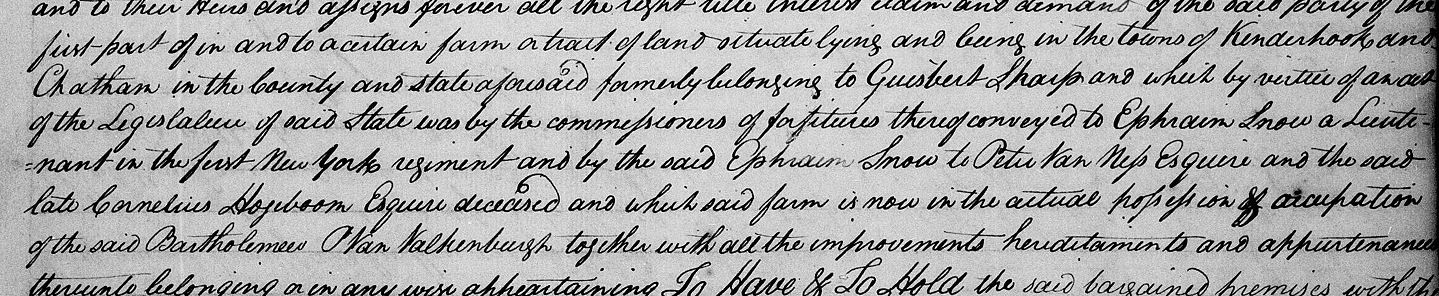 and to their Heirs and assigns forever all the right title interest claim and demand of the said party of the
first part of in and to a certain farm or tract of land situate lying and being in the towns of Kinderhook and
Chatham in the County and state aforesaid formerly belonging to Guisbert Sharp and which by virtue of an act
of the Legislature of said State was by the commissioners of forfitures thereof conveyed to Ephraim Snow a Lieute-
=nant in the first New York regiment and by the said Ephraim Snow to Peter Van Ness Esquire and the said
late Cornelius Hogeboom Esquire deceased and which said farm is now in the actual possession & occupation
of the said Bartholemew Van Valkenburgh together with all the improvements hereditaments and appurtenances
thereunto belonging or in any wise appertaining To Have & To Hold the said bargained premises with the